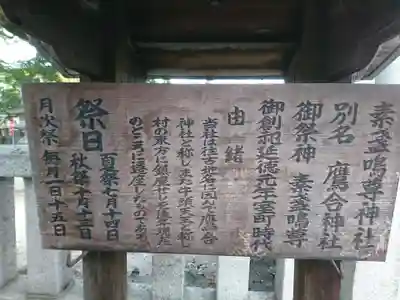 素盞嗚尊神社
別名 鷹合神社
御祭神 素盞嗚尊
御創祀延徳元年室町時代
由緒
当社は往古地名に因み鷹合
神社と称しまた牛頭天王と称し
村の東方に鎮座せしを後現在
のところに遷座したものである
祭日 夏祭七月十四日
秋祭十月十六日
月次祭 毎月一日十五日